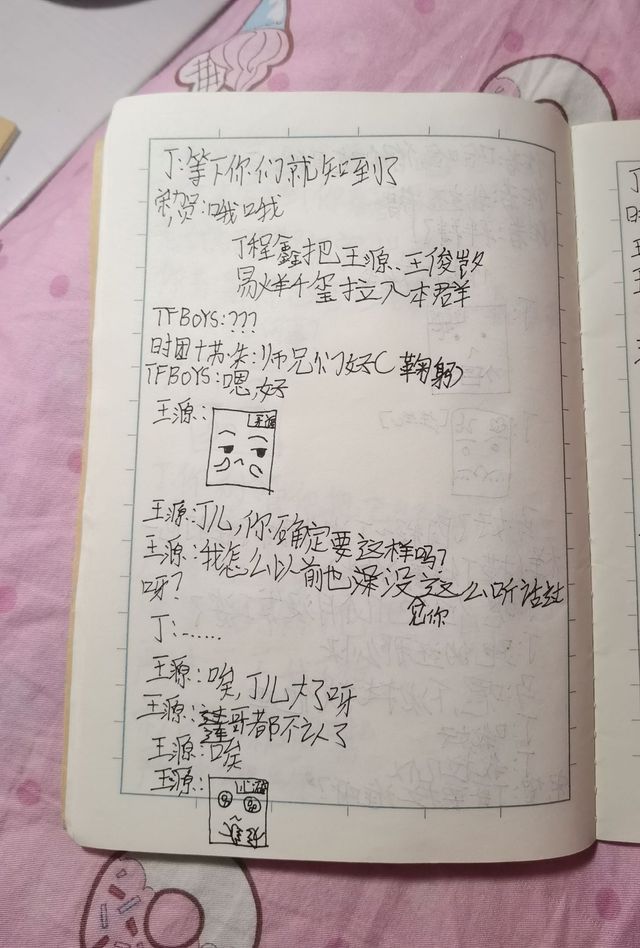 丁:等下你们就知到了
贺:哦哦
丁程鑫把王源、王俊凯
易烊千玺拉入本群
TFBOYS:???
时团+茜朱:师兄们好(鞠躬)
TFBOYS:嗯,好
王源:
王源:丁儿,你确定要这样吗?
王源:我怎么以前也没见你这么听话过
呀?
丁:……
王源:唉,丁儿大了呀
王源:连哥都不认了
王源:唉
王源: